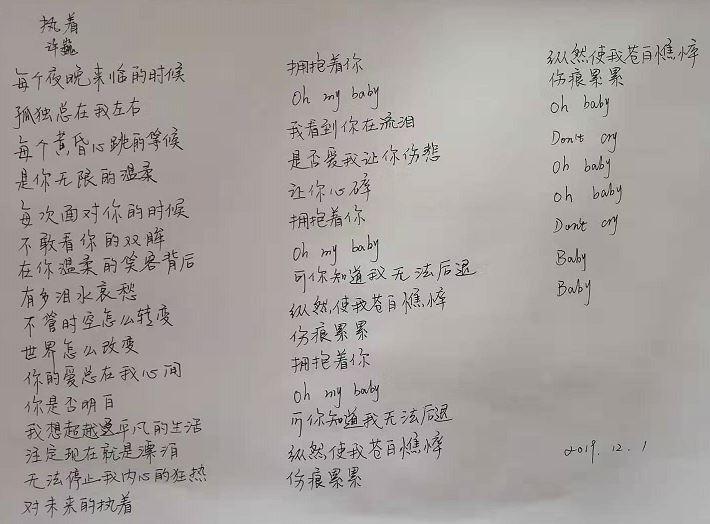 执着
许巍
每个夜晚来临的时候
孤独总在我左右
每个黄昏心跳的等候
是你无限的温柔
每次面对你的时候
不敢看你的双眸
在你温柔的笑容背后
有多泪水哀愁
不管时空怎么转变
世界怎么改变
你的爱总在我心间
你是否明白
我想超越平凡的生活
注定现在就是漂泊
无法停止我内心的狂热
对未来的执着
拥抱着你
Oh my baby
我看到你在流泪
是否爱我让你伤悲
让你心碎
拥抱着你
Oh my baby
可你知道我无法后退
纵然使我苍白憔悴
伤痕累累
拥抱着你
Oh my baby
可你知道我无法后退
纵然使我苍白憔悴
伤痕累累
纵然使我苍白憔悴
伤痕累累
Oh baby
Don't cry
Oh baby
Oh baby
Don't cry
Baby
Baby
2019.12.1